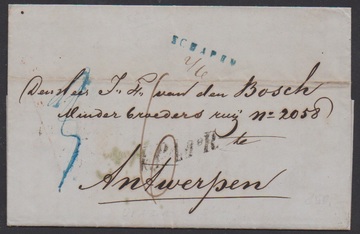 SCHAPEN
Den Heer J. F. van den Bosch
Minder broeders ruij No 2058
te
Antwerpen